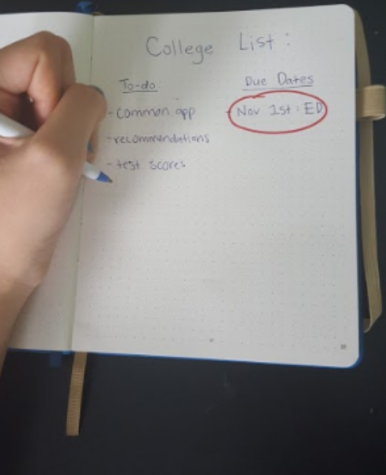 College List:
To-do
- common app
- recommendations
- test scores
Due Dates
- Nov 1st: ED